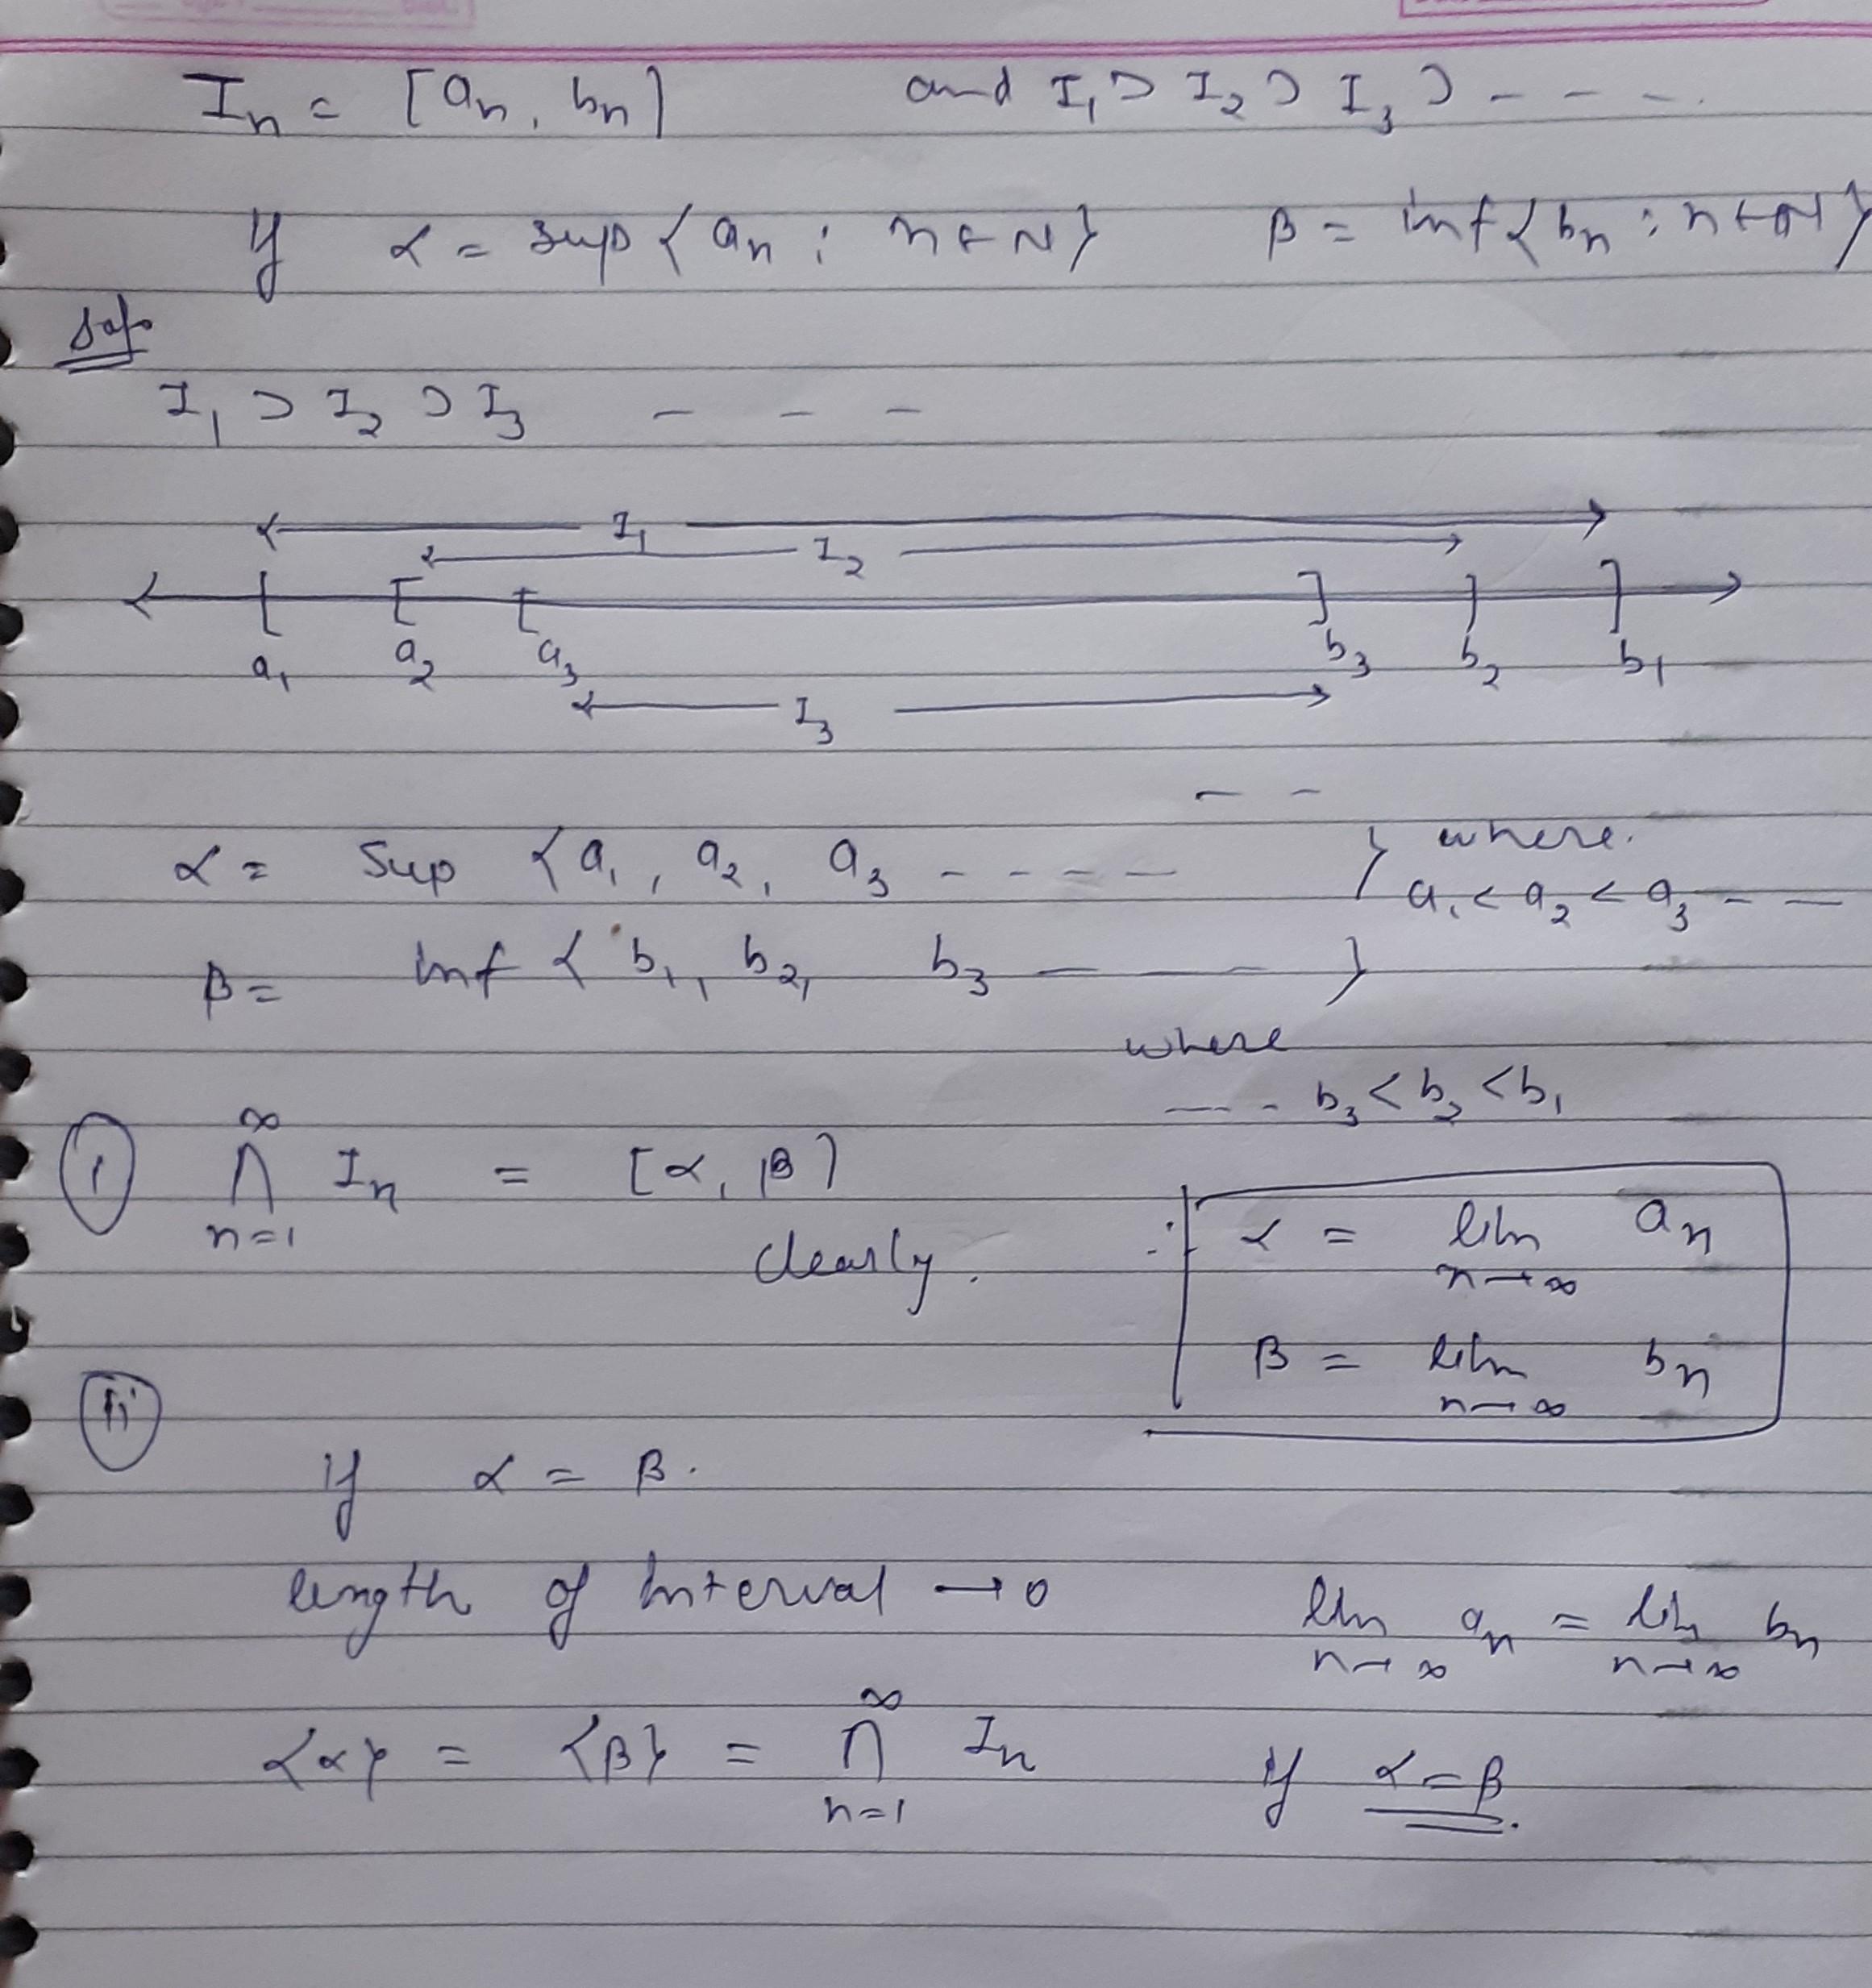 Iₙ = [aₙ, bₙ] and I₁ ⊃ I₂ ⊃ I₃ ⊃ - - -.
If α = sup {aₙ : n ∈ N} β = inf {bₙ : n ∈ N}
Solⁿ
I₁ ⊃ I₂ ⊃ I₃ - - -
I₁
I₂
a₁ a₂ a₃ b₃ b₂ b₁
I₃
- -
α = Sup {a₁, a₂, a₃ - - - - } where.
a₁ < a₂ < a₃ - -
β = inf {b₁, b₂, b₃ - - - }
where
--- b₃ < b₂ < b₁
(i) ∞ ∩ n=1 Iₙ = [α, β]
clearly.
∴ α = lim n→∞ aₙ
β = lim n→∞ bₙ
(ii)
if α = β.
length of interval → 0 lim n→∞ aₙ = lim n→∞ bₙ
{α} = {β} = ∞ ∩ n=1 Iₙ if α = β.